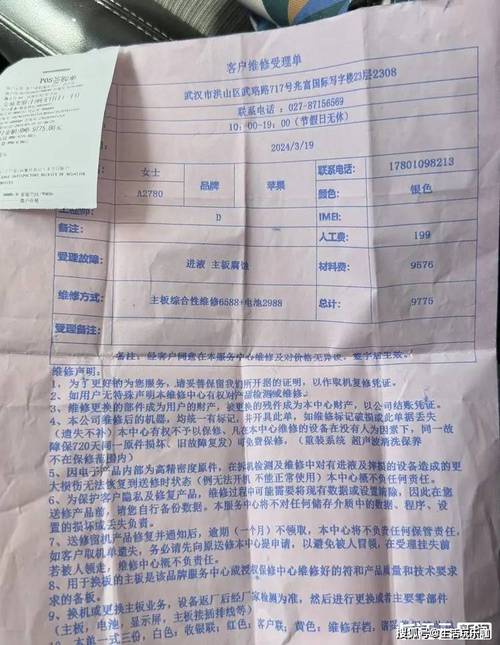 POS签购单
客户维修受理单
武汉市洪山区武珞路717号兆富国际写字楼23层2308
联系电话：027-87156569
10：00-19：00（节假日无休）
2024/3/19
女士
联系电话：
17801098213
A2780
品牌
苹果
颜色：
银色
工程师：
D
IMEI:
备注：
人工费：
199
受理故障：
进液 主板腐蚀
材料费：
9576
维修方式：
主板综合性维修6588+电池2988
总计：
9775
受理备注：
备注：经客户同意在本服务中心维修及对价格无异议，签字后生效。
维修声明：
1、为了更好的为您服务，请妥善保留我们所开据的证明，以作取机复修凭证。
2、如用户无特殊声明本维修中心有权对产品检测或维修。
3、维修更换的部件成为用户的财产，被更换的残件成为本中心财产，以公司结账凭证。
4、本公司维修后的机器，均统一有标记，并开具此单，如维修标记破损或此单据丢失
（遗失不补）本中心有权不予以保修，凡在本中心维修的设备在没有人为因素下，同一故
障保720天同一原件损坏、旧故障复发）可免费保修，（重装系统 超声波清洗保养
不在保修范围内）
5、因电子产品内部为高精密度原件，在拆机检测及维修中对有进液及摔损的设备造成的更
大损伤无法恢复到送修时状态（例无法开机 不能正常使用）本中心概不负任何责任。
6、为保护客户隐私及修复产品，维修过程中可能需要将现有数据或设置清除，因此在您
送修产品前，请您自行备份数据。本服务中心将不对任何储存介质中的数据、程序、设
置的损坏或丢失负责。
7、送修留机产品修复并通知后，逾期（一个月）不领取，本中心将不负责任何保管责任，
如客户取机单遗失，务必请先向原送修本中心提申请，以避免被人冒领，在受理挂失前
若被人领走，维修中心概不负责任。
8、用于换板的主板是该品牌服务中心或授权保修中心维修好的符和产品质量和技术要求
求的备板。
9、换机或更换主板业务，设备返厂后经厂家检测为准，然后进行更换或者主要零部件
（主板，电池，显示屏，主板接插排线等）
10、本单一式三份，白色：收银联；红色：客户联；黄色：维修存档，
搜狐号@生活玩乐圈